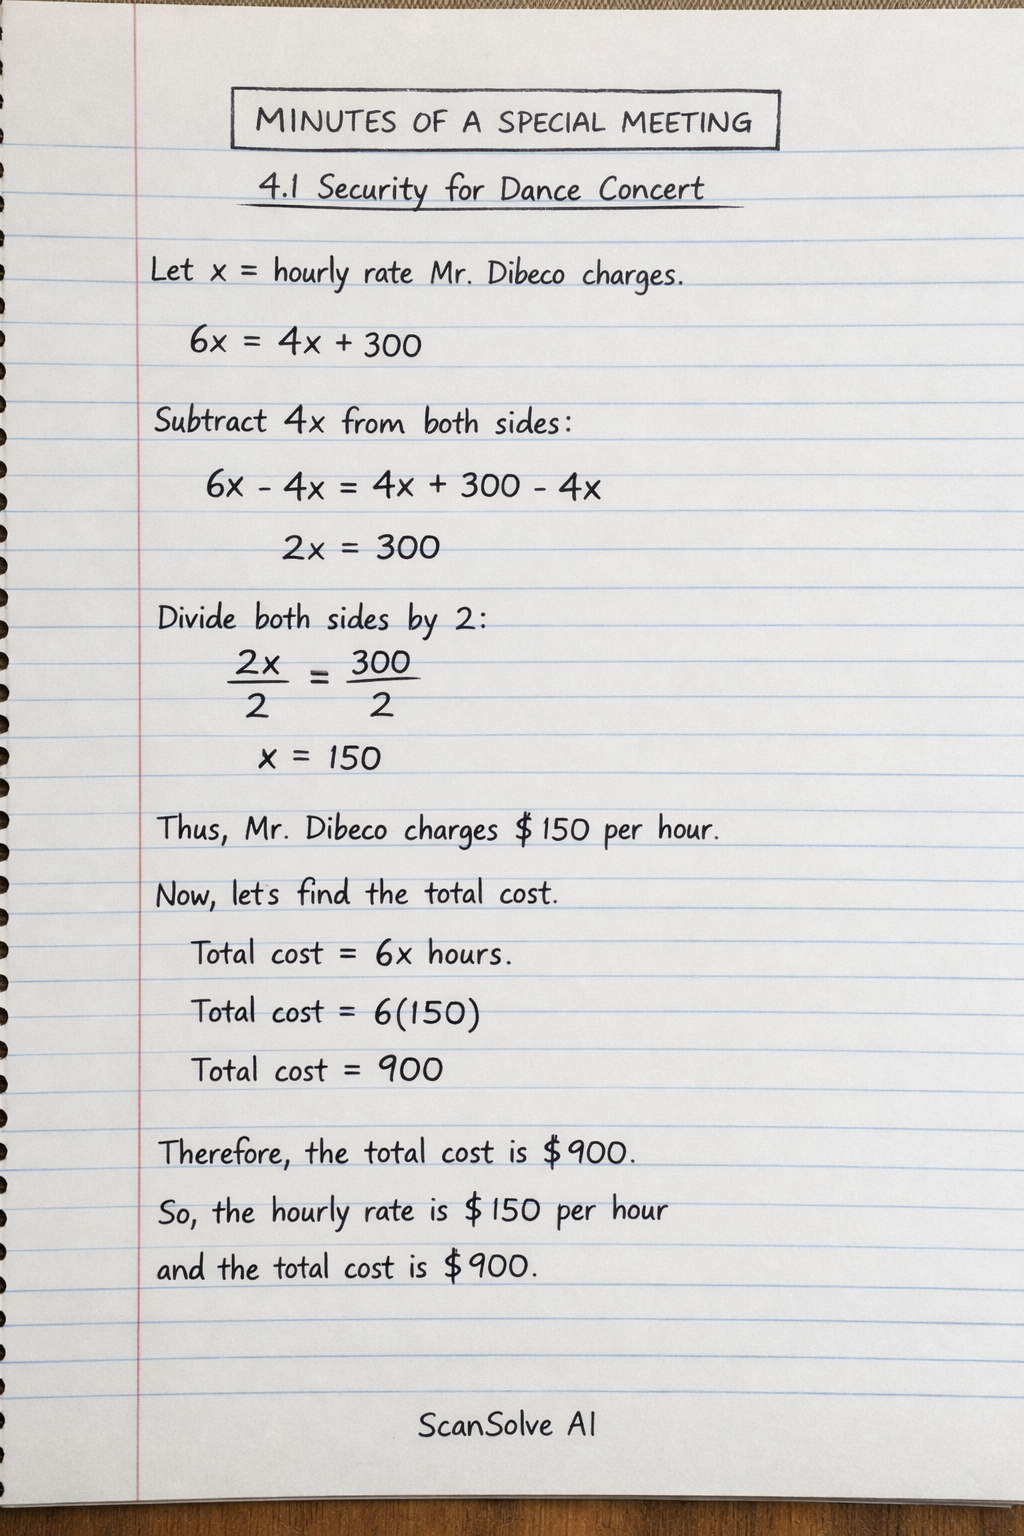 MINUTES OF A SPECIAL MEETING
4.1 Security for Dance Concert
Let x = hourly rate Mr. Dibeco charges.
6x = 4x + 300
Subtract 4x from both sides:
6x - 4x = 4x + 300 - 4x
2x = 300
Divide both sides by 2:
2x/2 = 300/2
x = 150
Thus, Mr. Dibeco charges $150 per hour.
Now, let's find the total cost.
Total cost = 6x hours.
Total cost = 6(150)
Total cost = 900
Therefore, the total cost is $900.
So, the hourly rate is $150 per hour
and the total cost is $900.
ScanSolve AI